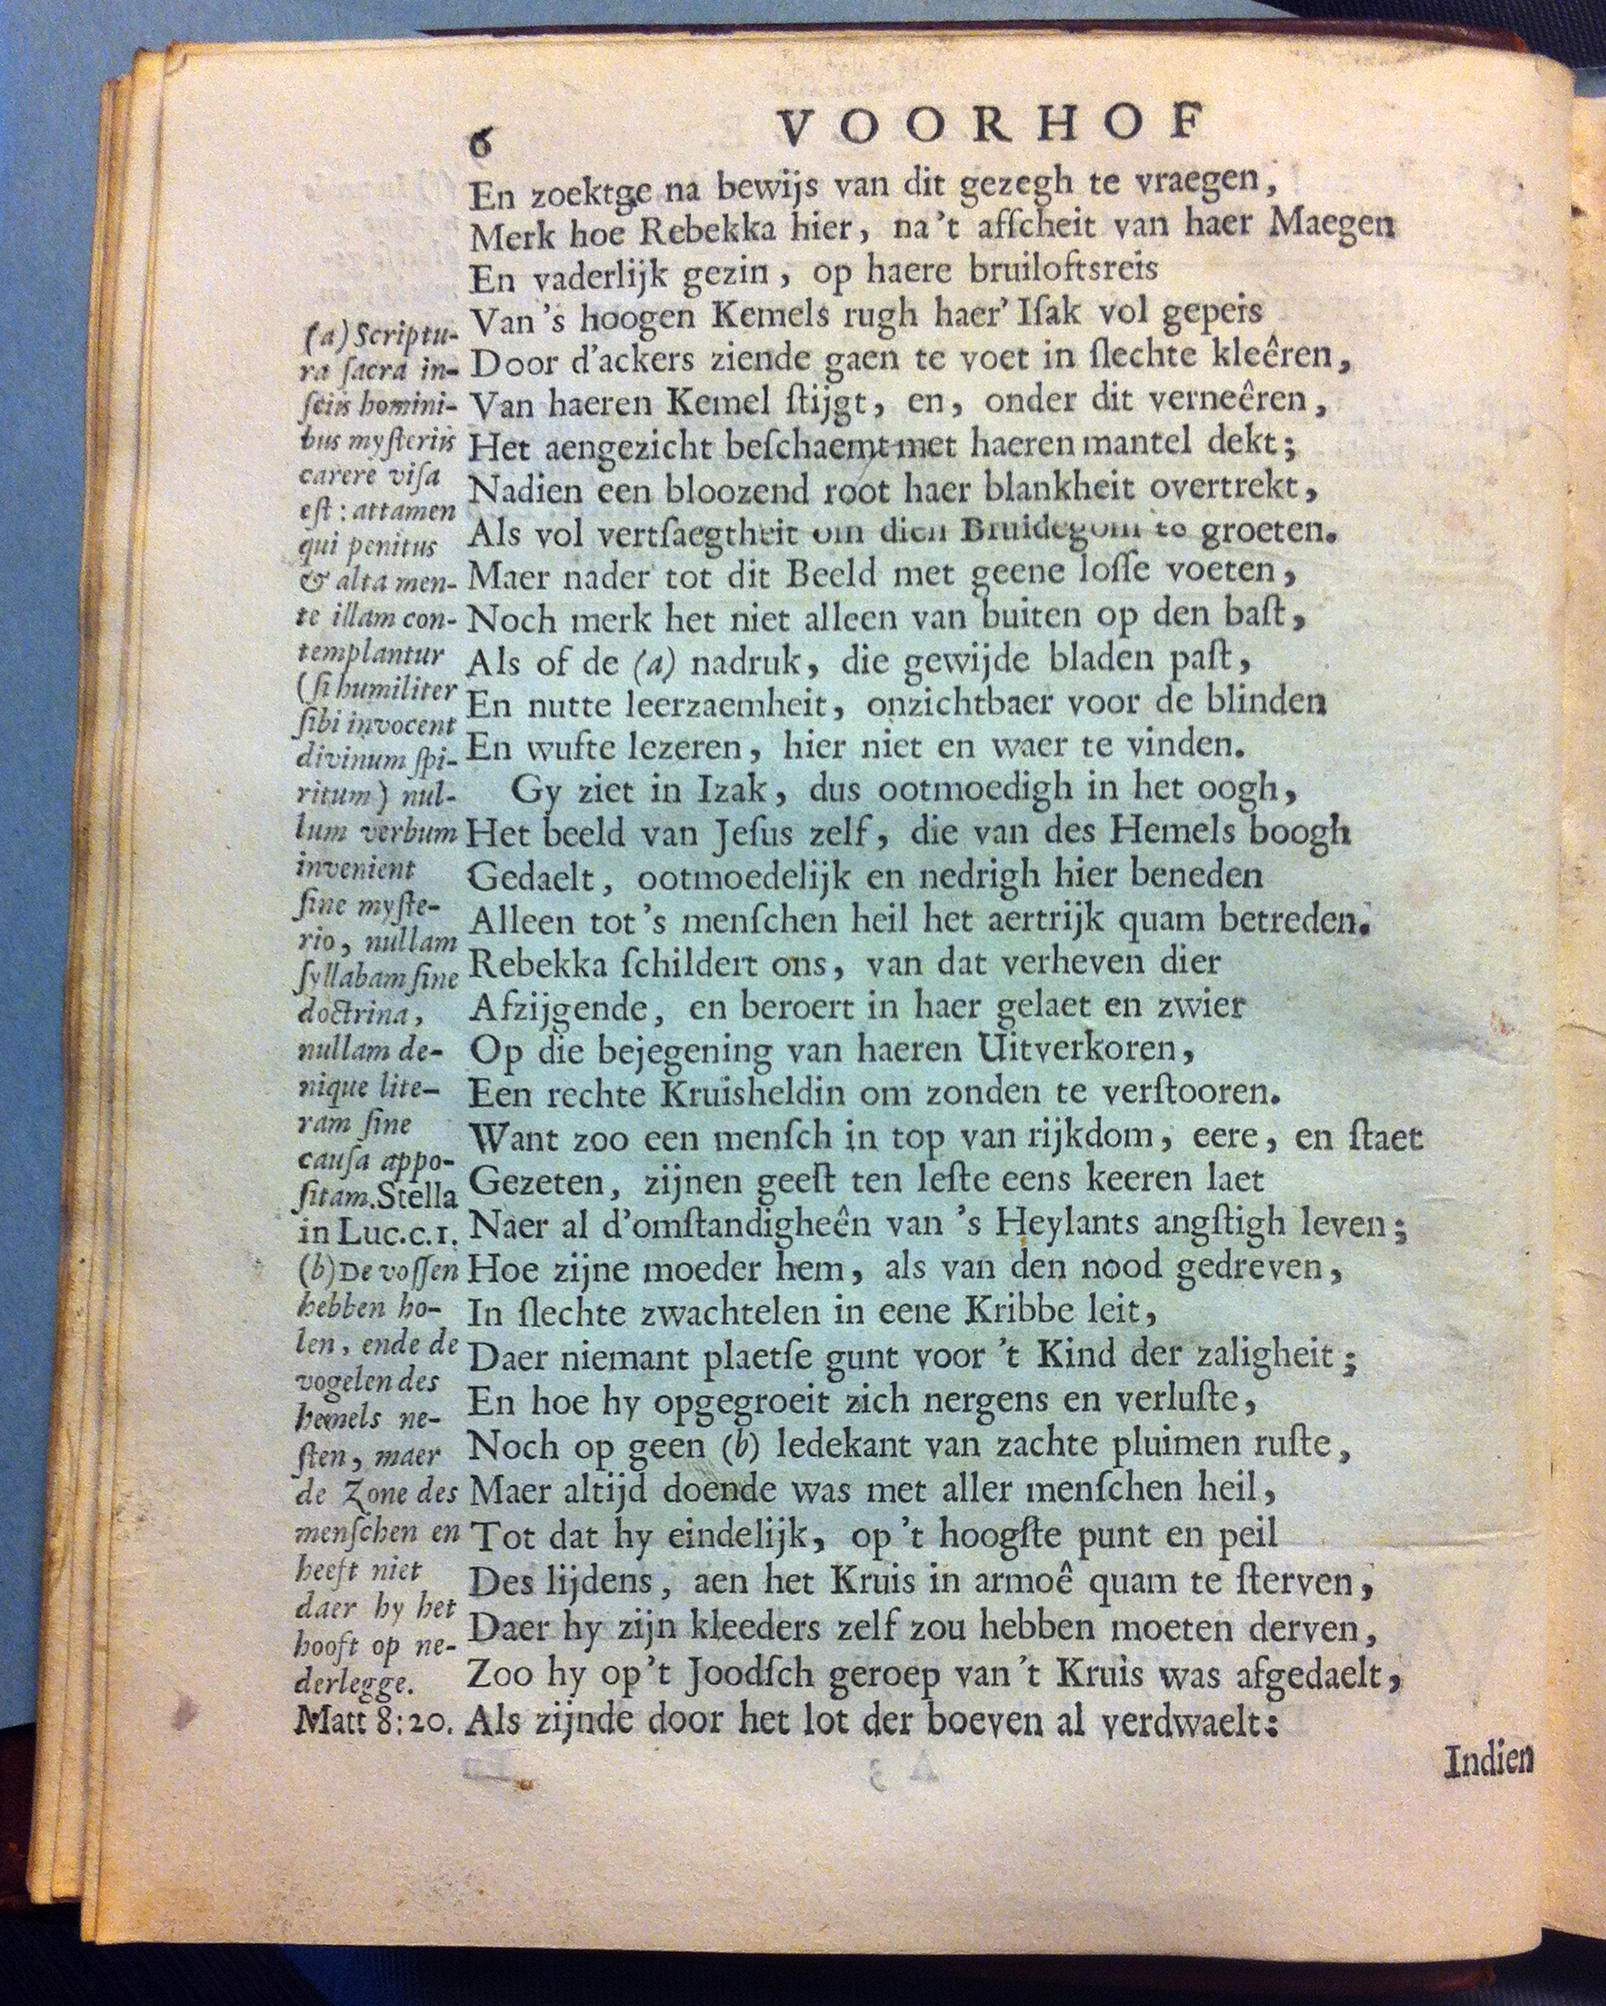 6
VOORHOF
En zoektge na bewijs van dit gezegh te vraegen,
Merk hoe Rebekka hier, na 't afſcheit van haer Maegen
En vaderlijk gezin, op haere bruiloftsreis
Van 's hoogen Kemels rugh haer' Iſak vol gepeis
Door d'ackers ziende gaen te voet in ſlechte kleêren,
Van haeren Kemel ſtijgt, en, onder dit verneêren,
Het aengezicht beſchaemt met haeren mantel dekt;
Nadien een bloozend root haer blankheit overtrekt,
Als vol vertſaegtheit om dien Bruidegom te groeten.
Maer nader tot dit Beeld met geene loſſe voeten,
Noch merk het niet alleen van buiten op den baſt,
Als of de (a) nadruk, die gewijde bladen paſt,
En nutte leerzaemheit, onzichtbaer voor de blinden
En wufte lezeren, hier niet en waer te vinden.
Gy ziet in Izak, dus ootmoedigh in het oogh,
Het beeld van Jeſus zelf, die van des Hemels boogh
Gedaelt, ootmoedelijk en nedrigh hier beneden
Alleen tot 's menſchen heil het aertrijk quam betreden.
Rebekka ſchildert ons, van dat verheven dier
Afzijgende, en beroert in haer gelaet en zwier
Op die bejegening van haeren Uitverkoren,
Een rechte Kruisheldin om zonden te verſtooren.
Want zoo een menſch in top van rijkdom, eere, en ſtaet
Gezeten, zijnen geeſt ten leſte eens keeren laet
Naer al d'omſtandigheên van 's Heylants angſtigh leven;
Hoe zijne moeder hem, als van den nood gedreven,
In ſlechte zwachtelen in eene Kribbe leit,
Daer niemant plaetſe gunt voor 't Kind der zaligheit;
En hoe hy opgegroeit zich nergens en verluſte,
Noch op geen (b) ledekant van zachte pluimen ruſte,
Maer altijd doende was met aller menſchen heil,
Tot dat hy eindelijk, op 't hoogſte punt en peil
Des lijdens, aen het Kruis in armoê quam te ſterven,
Daer hy zijn kleeders zelf zou hebben moeten derven,
Zoo hy op 't Joodſch geroep van 't Kruis was afgedaelt,
Als zijnde door het lot der boeven al verdwaelt:
Indien
(a) Scriptu-
ra ſacra in-
ſciis homini-
bus myſteriis
carere viſa
eſt: attamen
qui penitus
& alta men-
te illam con-
templantur
(ſi humiliter
ſibi invocent
divinum ſpi-
ritum) nul-
lum verbum
invenient
ſine myſte-
rio, nullam
ſyllabam ſine
doctrina,
nullam de-
nique lite-
ram ſine
cauſa appo-
ſitam. Stella
in Luc. c. 1.
(b) De voſſen
hebben ho-
len, ende de
vogelen des
hemels ne-
ſten, maer
de Zone des
menſchen en
heeft niet
daer hy het
hooft op ne-
derlegge.
Matt 8:20.